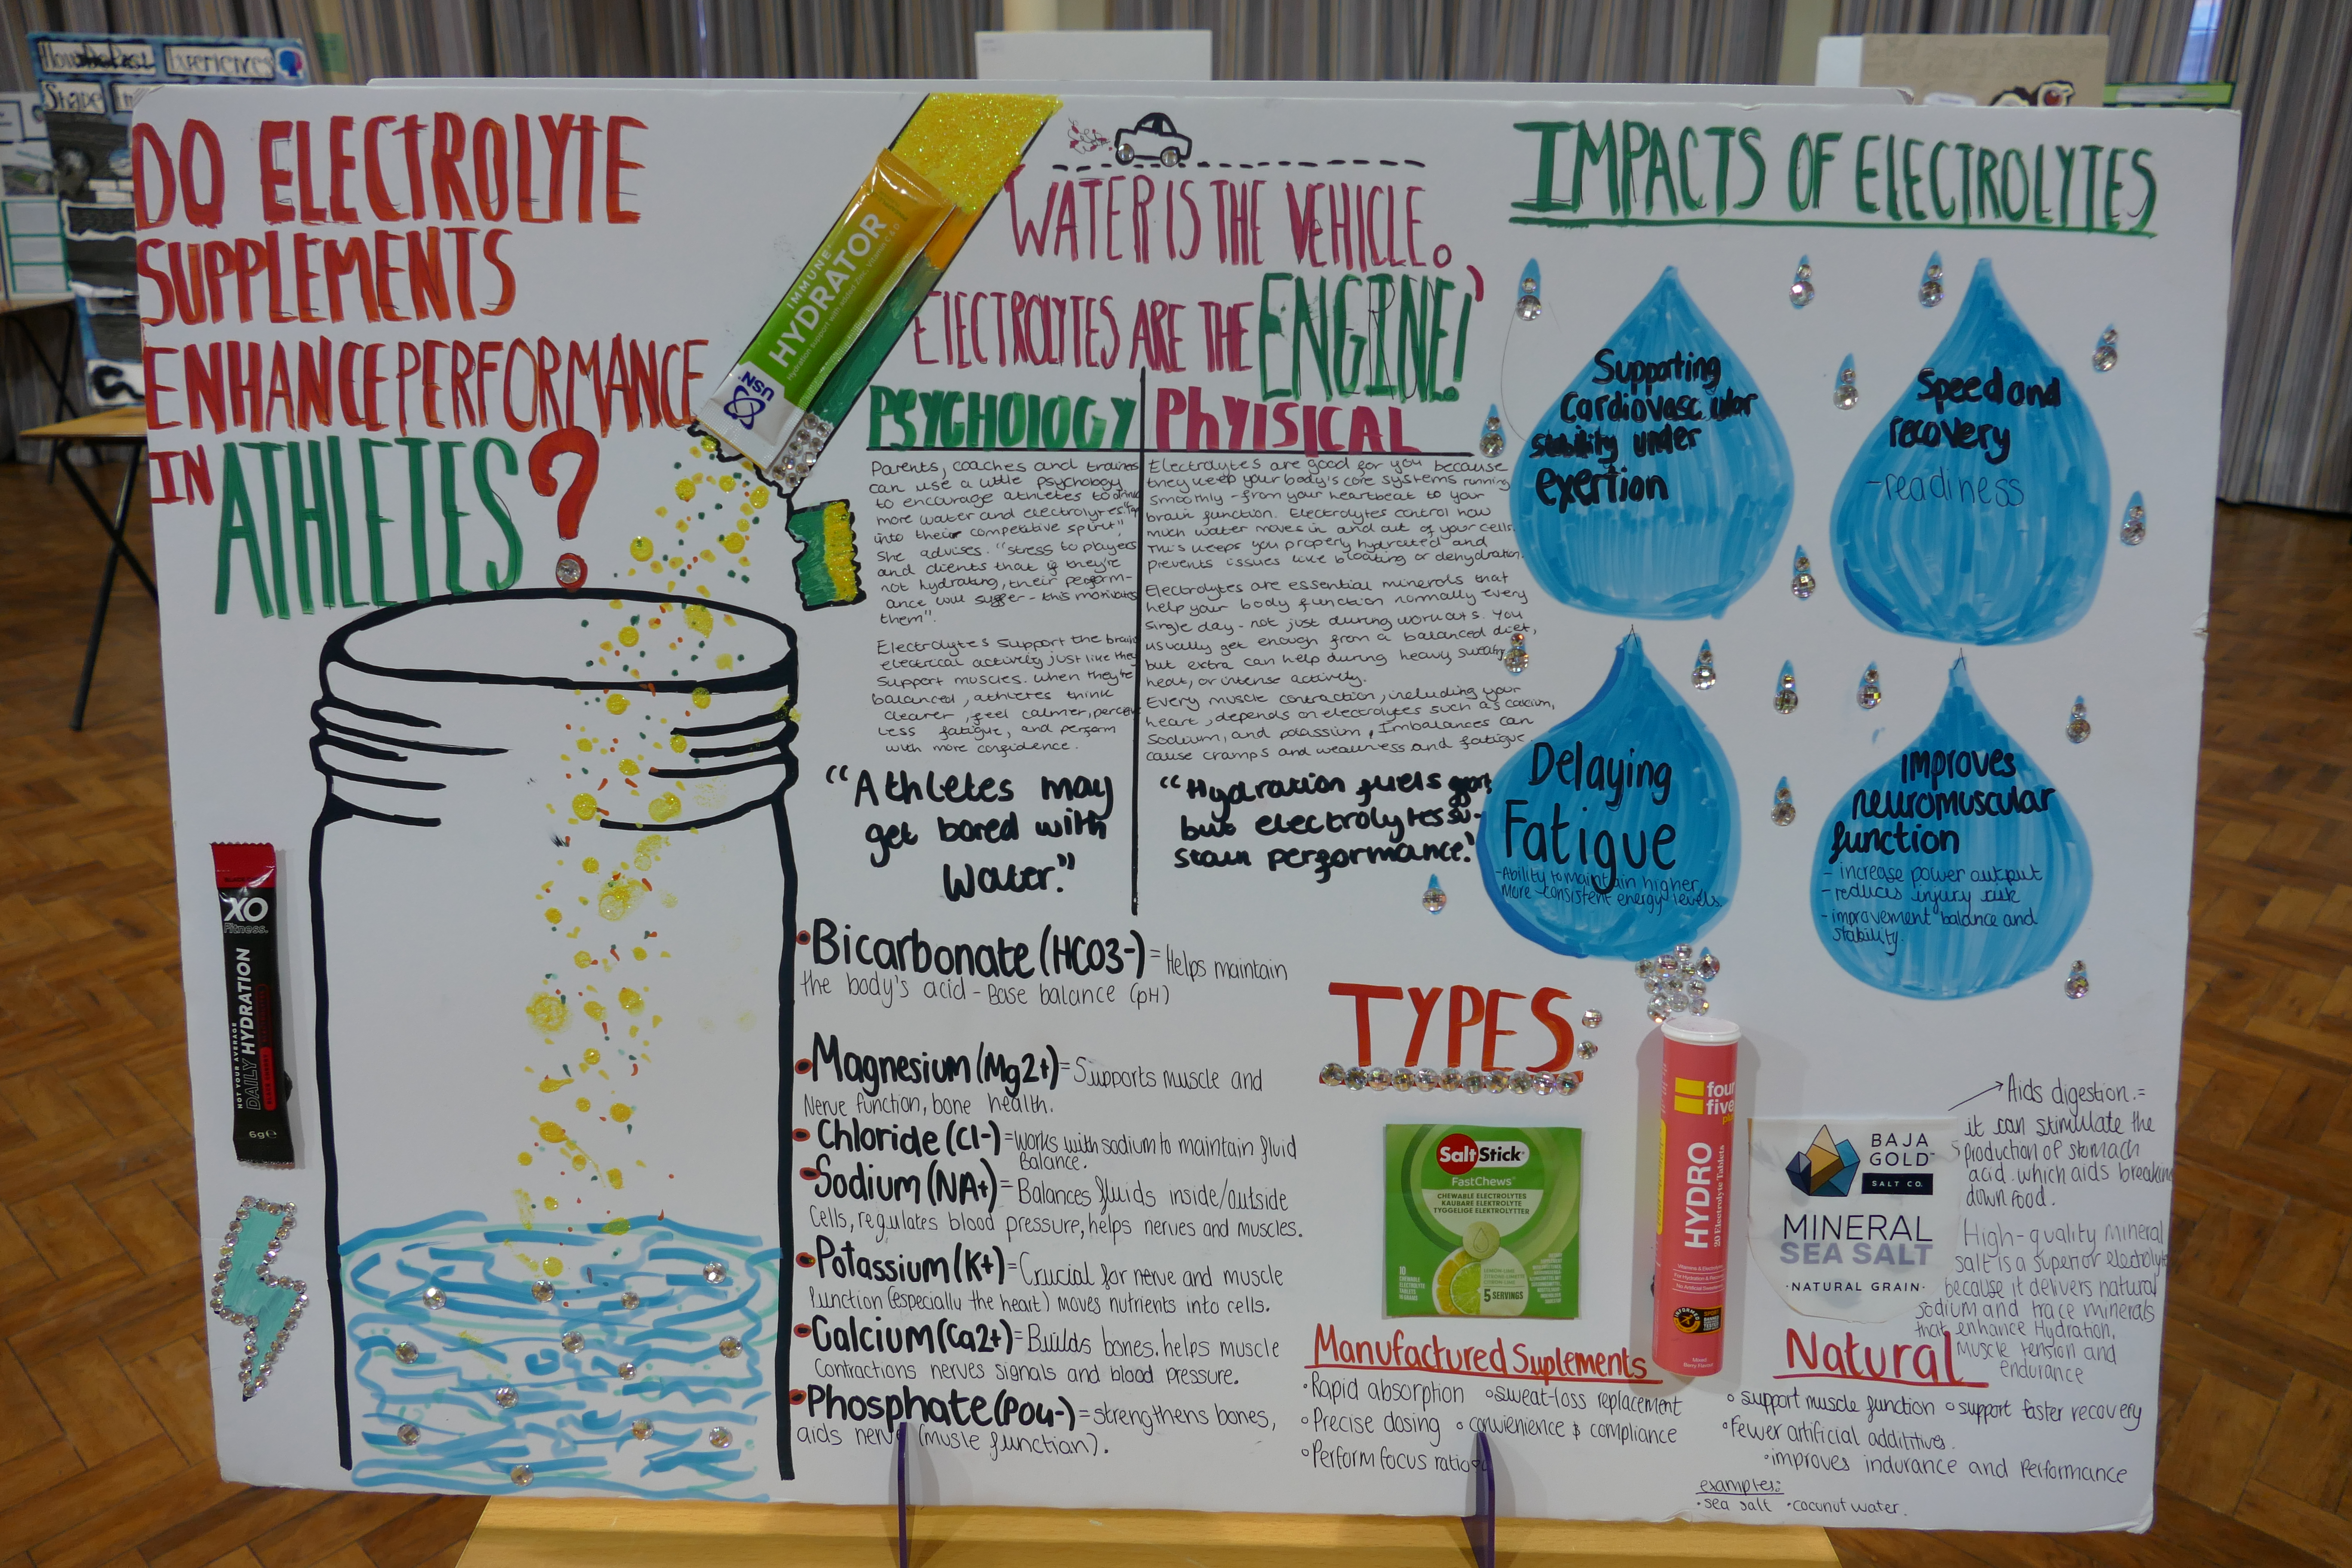 DO ELECTROLYTE
SUPPLEMENTS
ENHANCE PERFORMANCE
IN ATHLETES?
USN
IMMUNE+
HYDRATOR
Hydration support with added Zinc, Vitamin C & D
WATER IS THE VEHICLE.
ELECTROLYTES ARE THE ENGINE!'
PSYCHOLOGY
Parents, coaches and trainers
can use a little psychology
to encourage athletes to drink
more water and electrolytes.
into their competitive spirit"
She advises. "stress to players
and clients that if they're
not hydrating, their perform-
ance will suffer - this motivates
them".
Electrolytes support the brain
electrical activity just like they
support muscles. When they're
balanced, athletes think
clearer, feel calmer, perceive
less fatigue, and perform
with more confidence.
"Athletes may
get bored with
Water."
PhYISICAL
Electrolytes are good for you because
they keep your body's core systems running
smoothly - from your heartbeat to your
brain function. Electrolytes control how
much water moves in and out of your cells.
This keeps you properly hydrated and
prevents issues like bloating or dehydration.
Electrolytes are essential minerals that
help your body function normally every
single day - not just during workouts. You
usually get enough from a balanced diet,
but extra can help during heavy sweating
heat, or intense activity.
Every muscle contraction, including your
heart, depends on electrolytes such as calcium,
Sodium, and potassium. Imbalances can
cause cramps and weakness and fatigue
"Hydration fuels sport
but electrolytes su-
stain performance."
IMPACTS OF ELECTROLYTES
Supporting
Cardiovascular
stability under
exertion
Speed and
recovery
-readiness
Delaying
Fatigue
-Ability to maintain higher
More -consistent energy levels.
improves
neuromuscular
function
- increase power output
- reduces injury risk
- improvement balance and
stability.
XO
Fitness.
NOT YOUR AVERAGE
DAILY HYDRATION
6g℮
• Bicarbonate (HCO3-) = Helps maintain
the body's acid - Base balance (pH)
• Magnesium (Mg2+) = Supports muscle and
Nerve function, bone health.
• Chloride (Cl-) = works with sodium to maintain fluid
Balance.
• Sodium (NA+) = Balances fluids inside/outside
Cells, regulates blood pressure, helps nerves and muscles.
• Potassium (K+) = Crucial for nerve and muscle
function (especially the heart) moves nutrients into cells.
• Calcium (Ca2+) = Builds bones. helps muscle
Contractions nerves signals and blood pressure.
• Phosphate (PO4-) = strengthens bones,
aids nerve (musle function).
TYPES
SaltStick
FastChews
CHEWABLE ELECTROLYTES
KAUBARE ELEKTROLYTE
TYGGELIGE ELEKTROLYTTER
5 SERVINGS
four
five
HYDRO
20 Electrolyte Tablets
BAJA
GOLD
SALT CO.
MINERAL
SEA SALT
·NATURAL GRAIN·
Aids digestion. =
it can stimulate the
production of stomach
acid. which aids breaking
down food.
High-quality mineral
salt is a superior electrolyte
because it delivers natural
sodium and trace minerals
that enhance Hydration,
Muscle tension and
endurance
Manufactured Suplements
• Rapid absorption • sweat-loss replacement
• Precise dosing • convienience & compliance
• Perform focus ratio
Natural
• support muscle function • support faster recovery
• Fewer artificial addititives.
• improves indurance and Performance
examples:
• sea salt • coconut water.